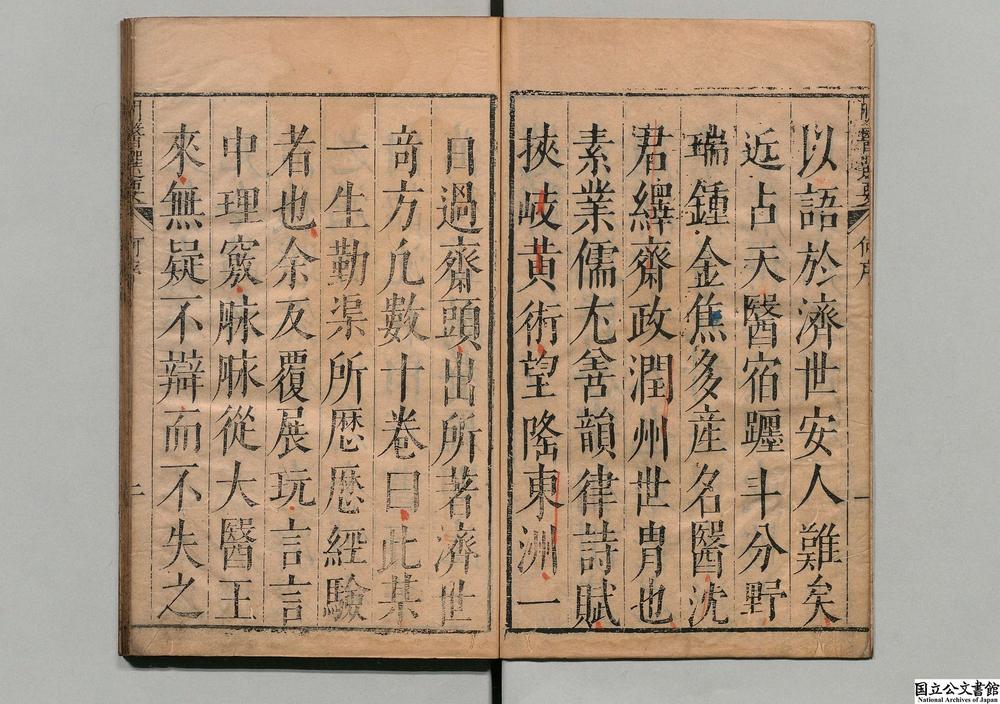 以語於濟世安人難矣
近占天醫宿躔斗分野
瑞鍾金焦多產名醫沈
君繹齋政潤州世胄也
素業儒尤善韻律詩賦
挾岐黃術望隆東洲一
日過齋頭出所著濟世
奇方凡數十卷曰此某
一生勤渠所歷歷經驗
者也余反覆展玩言言
中理竅脉脉從大醫王
來無疑不辯而不失之
國立公文書館
National Archives of Japan